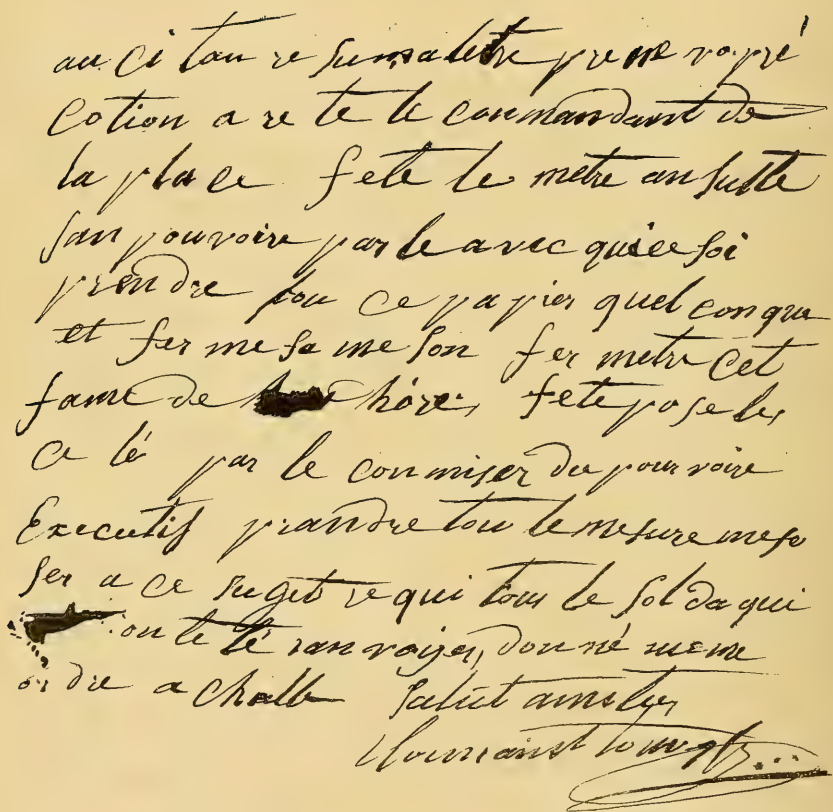 au ci tau re sumaletre prene vo pré
Cotion a re te le conmandant de
la place fete le metre an sutte
san pouvoire parle avec quice soi
prendre tou ce papier quel conque
et fer me sa me son fer metre cet
fame de hore, fete pose les
ce lé par le conmiser du pouvoire
Executif prandre tou le mesure
ser a ce suget re qui tous le solda qui
on te té ranvoiyer, donné meme
ordre a Challe Salut amitiez
Toussaint Louverture